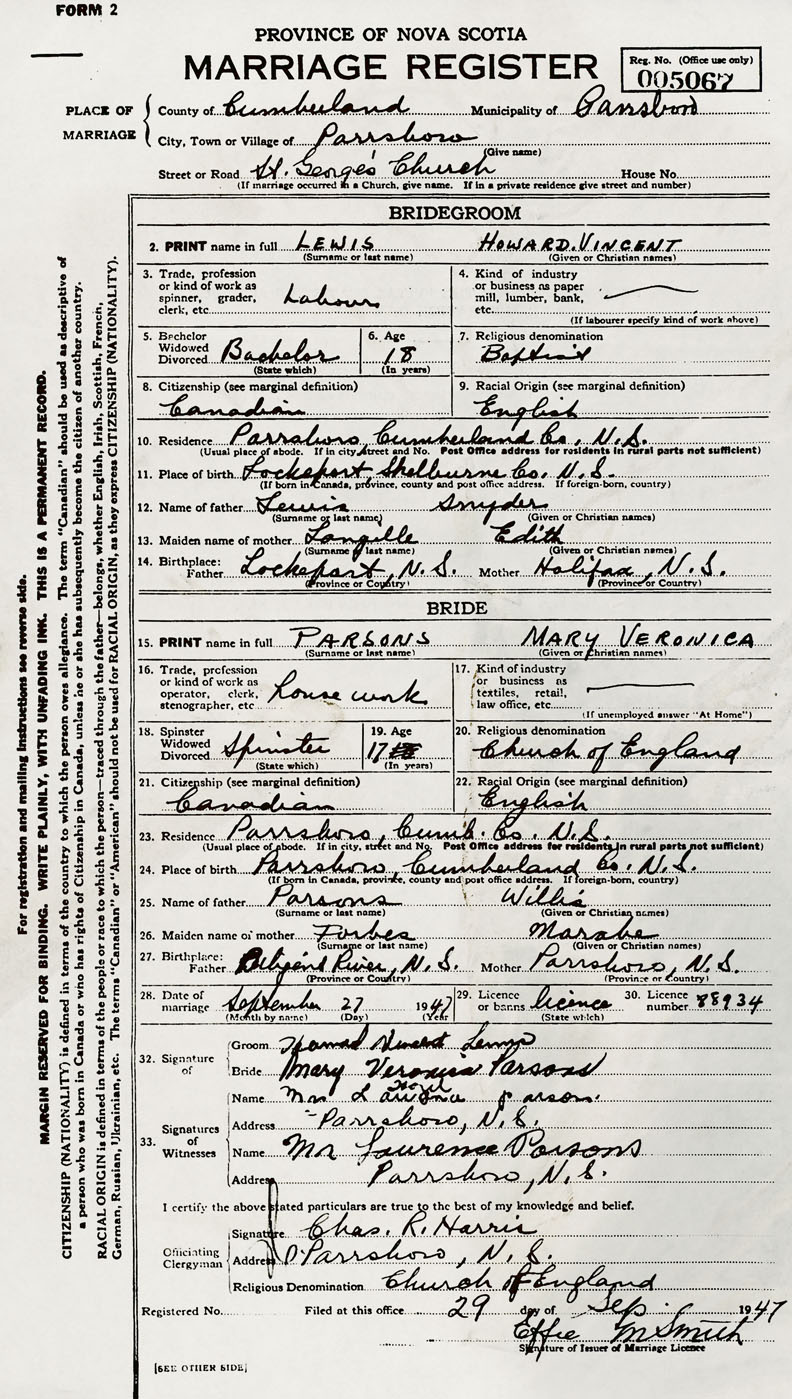 FORM 2
PROVINCE OF NOVA SCOTIA
MARRIAGE REGISTER
Reg. No. (Office use only)
005067
PLACE OF MARRIAGE
County of Cumberland Municipality of Parrsboro
City, Town or Village of Parrsboro
(Give name)
Street or Road St. George's Church House No.
(If marriage occurred in a Church, give name. If in a private residence give street and number)
BRIDEGROOM
2. PRINT name in full LEWIS HOWARD. VINCENT
(Surname or last name) (Given or Christian names)
3. Trade, profession or kind of work as spinner, grader, clerk, etc. Labour
4. Kind of industry or business as paper mill, lumber, bank, etc.
(If labourer specify kind of work above)
5. Bachelor Widowed Divorced Bachelor
(State which)
6. Age 18
(In years)
7. Religious denomination
Baptist
8. Citizenship (see marginal definition)
Canadian
9. Racial Origin (see marginal definition)
English
10. Residence Parrsboro, Cumberland Co., N.S.
(Usual place of abode. If in city, street and No. Post Office address for residents in rural parts not sufficient)
11. Place of birth Lockeport, Shelburne Co. N.S.
(If born in Canada, province, county and post office address. If foreign-born, country)
12. Name of father Lewis Snyder
(Surname or last name) (Given or Christian names)
13. Maiden name of mother Langille Edith
(Surname or last name) (Given or Christian names)
14. Birthplace: Father Lockeport, N.S. Mother Halifax, N.S.
(Province or Country) (Province or Country)
BRIDE
15. PRINT name in full PARSONS MARY VERONICA
(Surname or last name) (Given or Christian names)
16. Trade, profession or kind of work as operator, clerk, stenographer, etc. house work
17. Kind of industry or business as textiles, retail, law office, etc.
(If unemployed answer "At Home")
18. Spinster Widowed Divorced Spinster
(State which)
19. Age 17
(In years)
20. Religious denomination
Church of England
21. Citizenship (see marginal definition)
Canadian
22. Racial Origin (see marginal definition)
English
23. Residence Parrsboro, Cumb. Co. N.S.
(Usual place of abode. If in city, street and No. Post Office address for residents in rural parts not sufficient)
24. Place of birth Parrsboro, Cumberland Co. N.S.
(If born in Canada, province, county and post office address. If foreign-born, country)
25. Name of father Parsons Willis
(Surname or last name) (Given or Christian names)
26. Maiden name of mother Forbes
(Surname or last name) (Given or Christian names)
27. Birthplace: Father River, N.S. Mother Parrsboro, N.S.
(Province or Country) (Province or Country)
28. Date of marriage September 27 1947
(Month by name) (Day) (Year)
29. Licence or banns licence
(State which)
30. Licence number 88934
32. Signature of
Groom Vincent Lewis
Bride Mary Veronica Parsons
33. Signatures of Witnesses
Name Mrs
Address Parrsboro, N.S.
Name Mr Laurence Parsons
Address Parrsboro, N.S.
I certify the above stated particulars are true to the best of my knowledge and belief.
Officiating Clergyman
Signature Chas. R. Harris
Address Parrsboro, N.S.
Religious Denomination Church of England
Registered No. Filed at this office 29 day of Sep. 1947
Effie M Smith
Signature of Issuer of Marriage Licence
[SEE OTHER SIDE]
For registration and mailing instructions see reverse side.
MARGIN RESERVED FOR BINDING. WRITE PLAINLY, WITH UNFADING INK. THIS IS A PERMANENT RECORD.
CITIZENSHIP (NATIONALITY) is defined in terms of the country to which the person owes allegiance. The term "Canadian" should be used as descriptive of
a person who was born in Canada or who has rights of Citizenship in Canada, unless he or she has subsequently become the citizen of another country.
RACIAL ORIGIN is defined in terms of the people or race to which the person—traced through the father—belongs, whether English, Irish, Scottish, French,
German, Russian, Ukrainian, etc. The terms "Canadian" or "American" should not be used for RACIAL ORIGIN, as they express CITIZENSHIP (NATIONALITY).